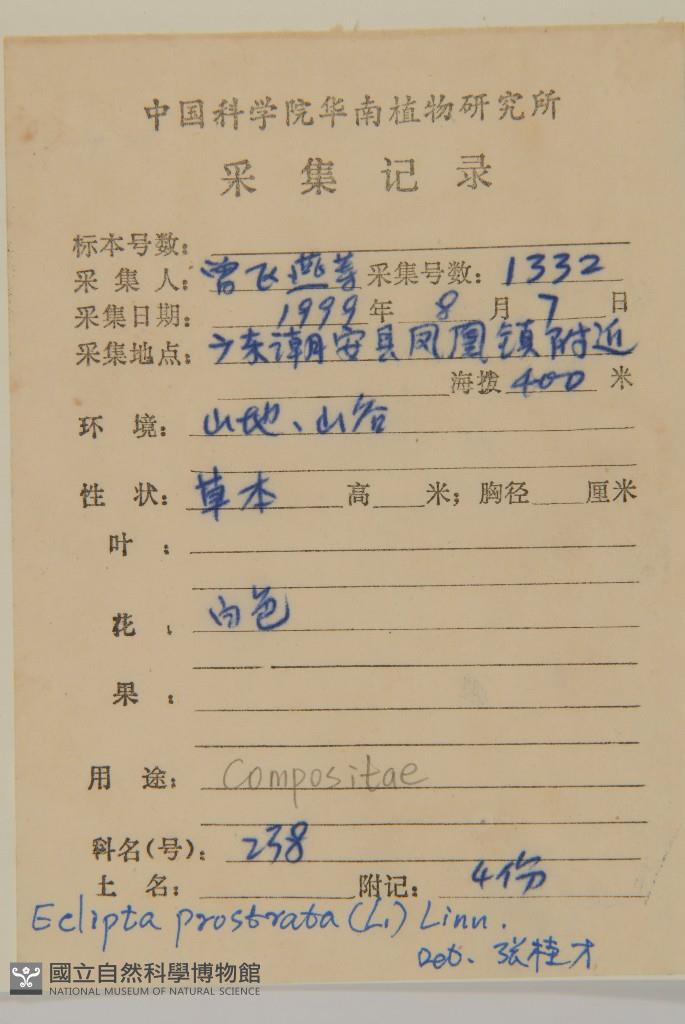 中国科学院华南植物研究所
采集记录
标本号数：
采集人：曾飞燕等 采集号数：1332
采集日期：1999年8月7日
采集地点：广东潮安县凤凰镇附近
海拨400米
环境：山地、山谷
性状：草本 高 米；胸径 厘米
叶：
花：白色
果：
用途：Compositae
科名(号)：238
土名： 附记：4份
Eclipta prostrata (L.) Linn.
Det. 张桂才
國立自然科學博物館
NATIONAL MUSEUM OF NATURAL SCIENCE